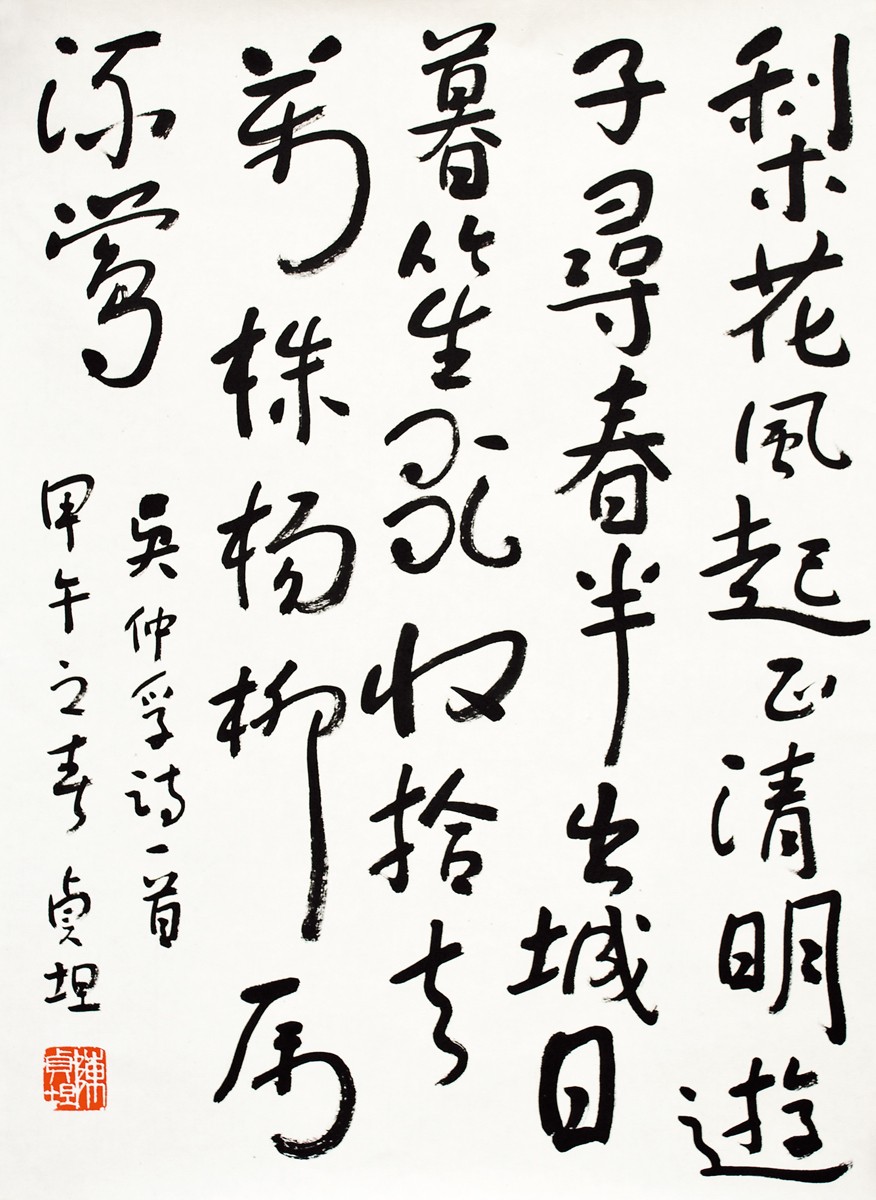 梨花風起正清明遊
子尋春半出城日
暮笙歌收拾去
萬株楊柳屬
流鶯
吳仲孚詩一首
甲午之春 貞坦
陳貞坦